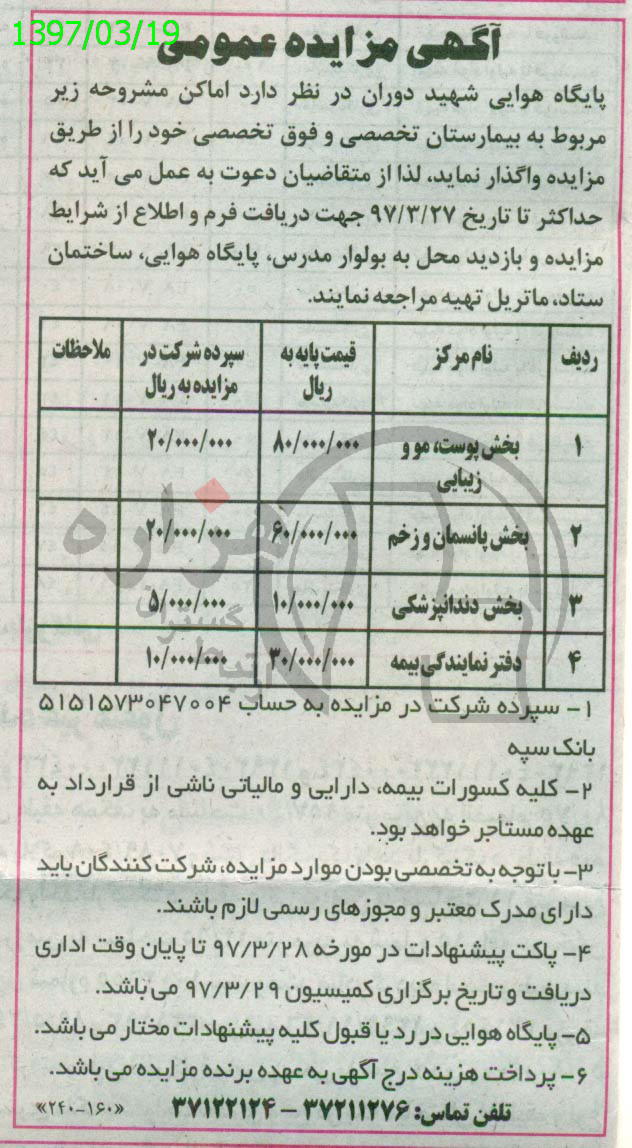 1397/03/19
آگهی مزایده عمومی
پایگاه هوایی شهید دوران در نظر دارد اماکن مشروحه زیر
مربوط به بیمارستان تخصصی و فوق تخصصی خود را از طریق
مزایده واگذار نماید، لذا از متقاضیان دعوت به عمل می آید که
حداکثر تا تاریخ ۹۷/۳/۲۷ جهت دریافت فرم و اطلاع از شرایط
مزایده و بازدید محل به بولوار مدرس، پایگاه هوایی، ساختمان
ستاد، ماتریل تهیه مراجعه نمایند.
ردیف نام مرکز قیمت پایه به ریال سپرده شرکت در مزایده به ریال ملاحظات
۱ بخش پوست، مو و زیبایی ۸۰/۰۰۰/۰۰۰ ۲۰/۰۰۰/۰۰۰
۲ بخش پانسمان و زخم ۶۰/۰۰۰/۰۰۰ ۲۰/۰۰۰/۰۰۰
۳ بخش دندانپزشکی ۱۰/۰۰۰/۰۰۰ ۵/۰۰۰/۰۰۰
۴ دفتر نمایندگی بیمه ۳۰/۰۰۰/۰۰۰ ۱۰/۰۰۰/۰۰۰
هزاره
گستران
۱- سپرده شرکت در مزایده به حساب ۵۱۵۱۵۷۳۰۴۷۰۰۴
بانک سپه
۲- کلیه کسورات بیمه، دارایی و مالیاتی ناشی از قرارداد به
عهده مستاجر خواهد بود.
۳- با توجه به تخصصی بودن موارد مزایده، شرکت کنندگان باید
دارای مدرک معتبر و مجوزهای رسمی لازم باشند.
۴- پاکت پیشنهادات در مورخه ۹۷/۳/۲۸ تا پایان وقت اداری
دریافت و تاریخ برگزاری کمیسیون ۹۷/۳/۲۹ می باشد.
۵- پایگاه هوایی در رد یا قبول کلیه پیشنهادات مختار می باشد.
۶- پرداخت هزینه درج آگهی به عهده برنده مزایده می باشد.
تلفن تماس: ۳۷۲۱۱۲۷۶ - ۳۷۱۲۲۱۲۴ «۲۴۰-۱۶۰»